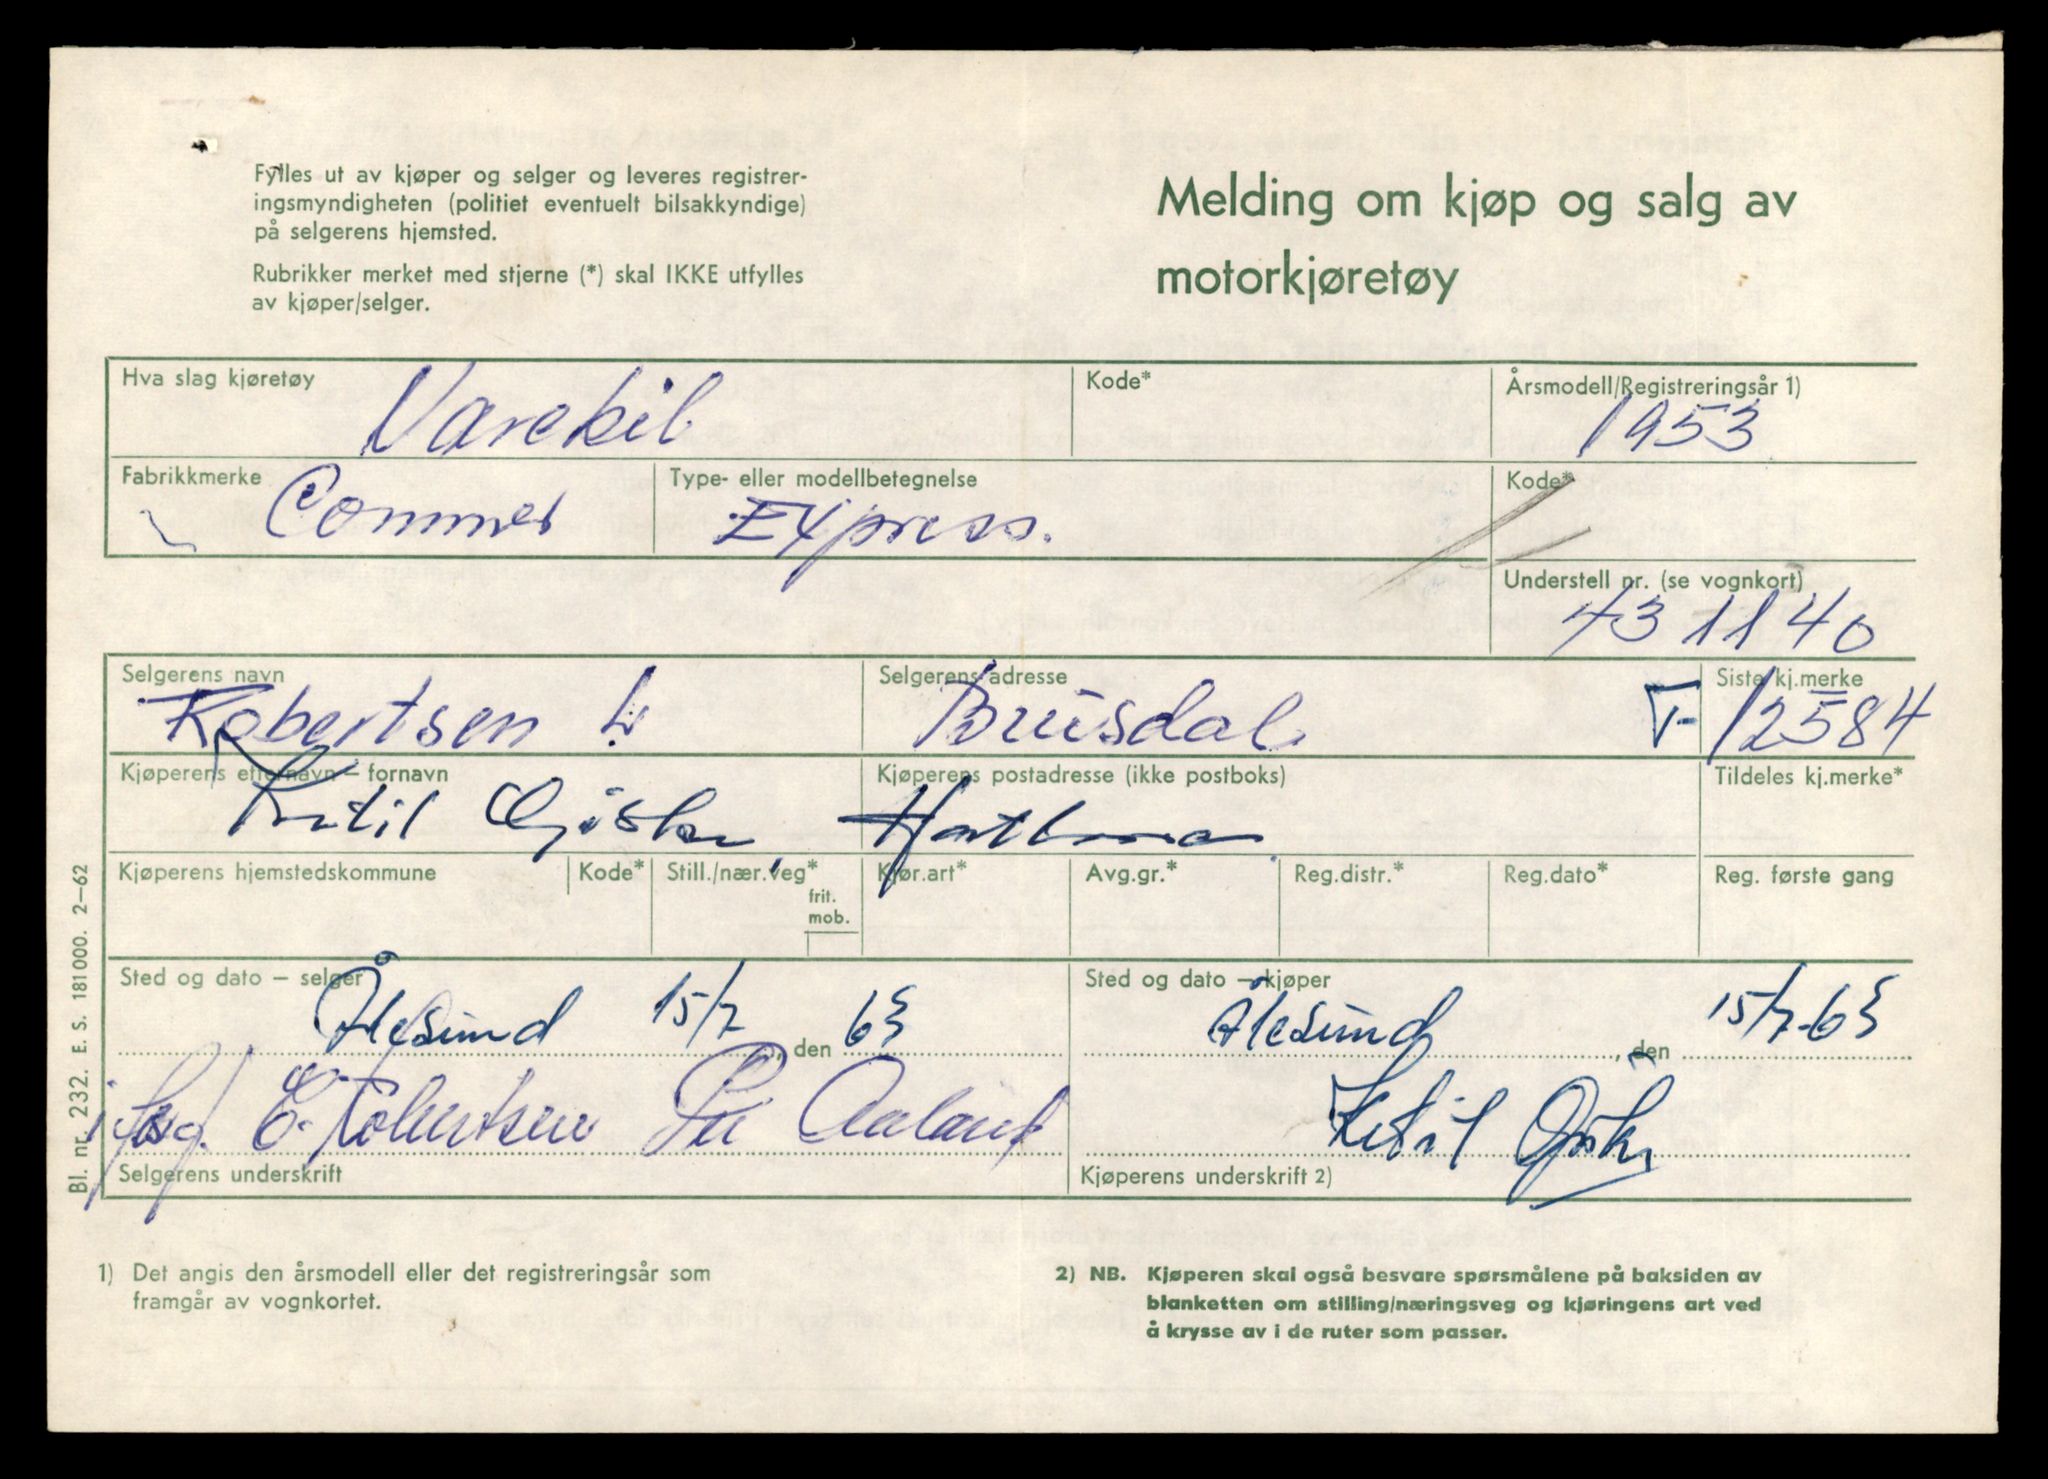 Fylles ut av kjøper og selger og leveres registrer-
ingsmyndigheten (politiet eventuelt bilsakkyndige)
på selgerens hjemsted.
Rubrikker merket med stjerne (*) skal IKKE utfylles
av kjøper/selger.
Melding om kjøp og salg av
motorkjøretøy
Hva slag kjøretøy Varebil
Kode*
Årsmodell/Registreringsår 1) 1953
Fabrikkmerke Commer
Type- eller modellbetegnelse Express.
Kode*
Understell nr. (se vognkort) 4311140
Selgerens navn Robertsen
Selgerens adresse Brusdal
Siste kj.merke T-12584
Kjøperens etternavn – fornavn Ketil
Kjøperens postadresse (ikke postboks)
Tildeles kj.merke*
Kjøperens hjemstedskommune
Kode*
Still./nær.veg*
frit.
mob.
Kjør.art*
Avg.gr.*
Reg.distr.*
Reg.dato*
Reg. første gang
Sted og dato – selger Ålesund 15/7, den 63
Sted og dato – kjøper Ålesund, den 15/7-63
E. Robertsen Per Aaland
Ketil
Selgerens underskrift
Kjøperens underskrift 2)
1) Det angis den årsmodell eller det registreringsår som
framgår av vognkortet.
2) NB. Kjøperen skal også besvare spørsmålene på baksiden av
blanketten om stilling/næringsveg og kjøringens art ved
å krysse av i de ruter som passer.
Bl. nr. 232. E. S. 181000. 2–62